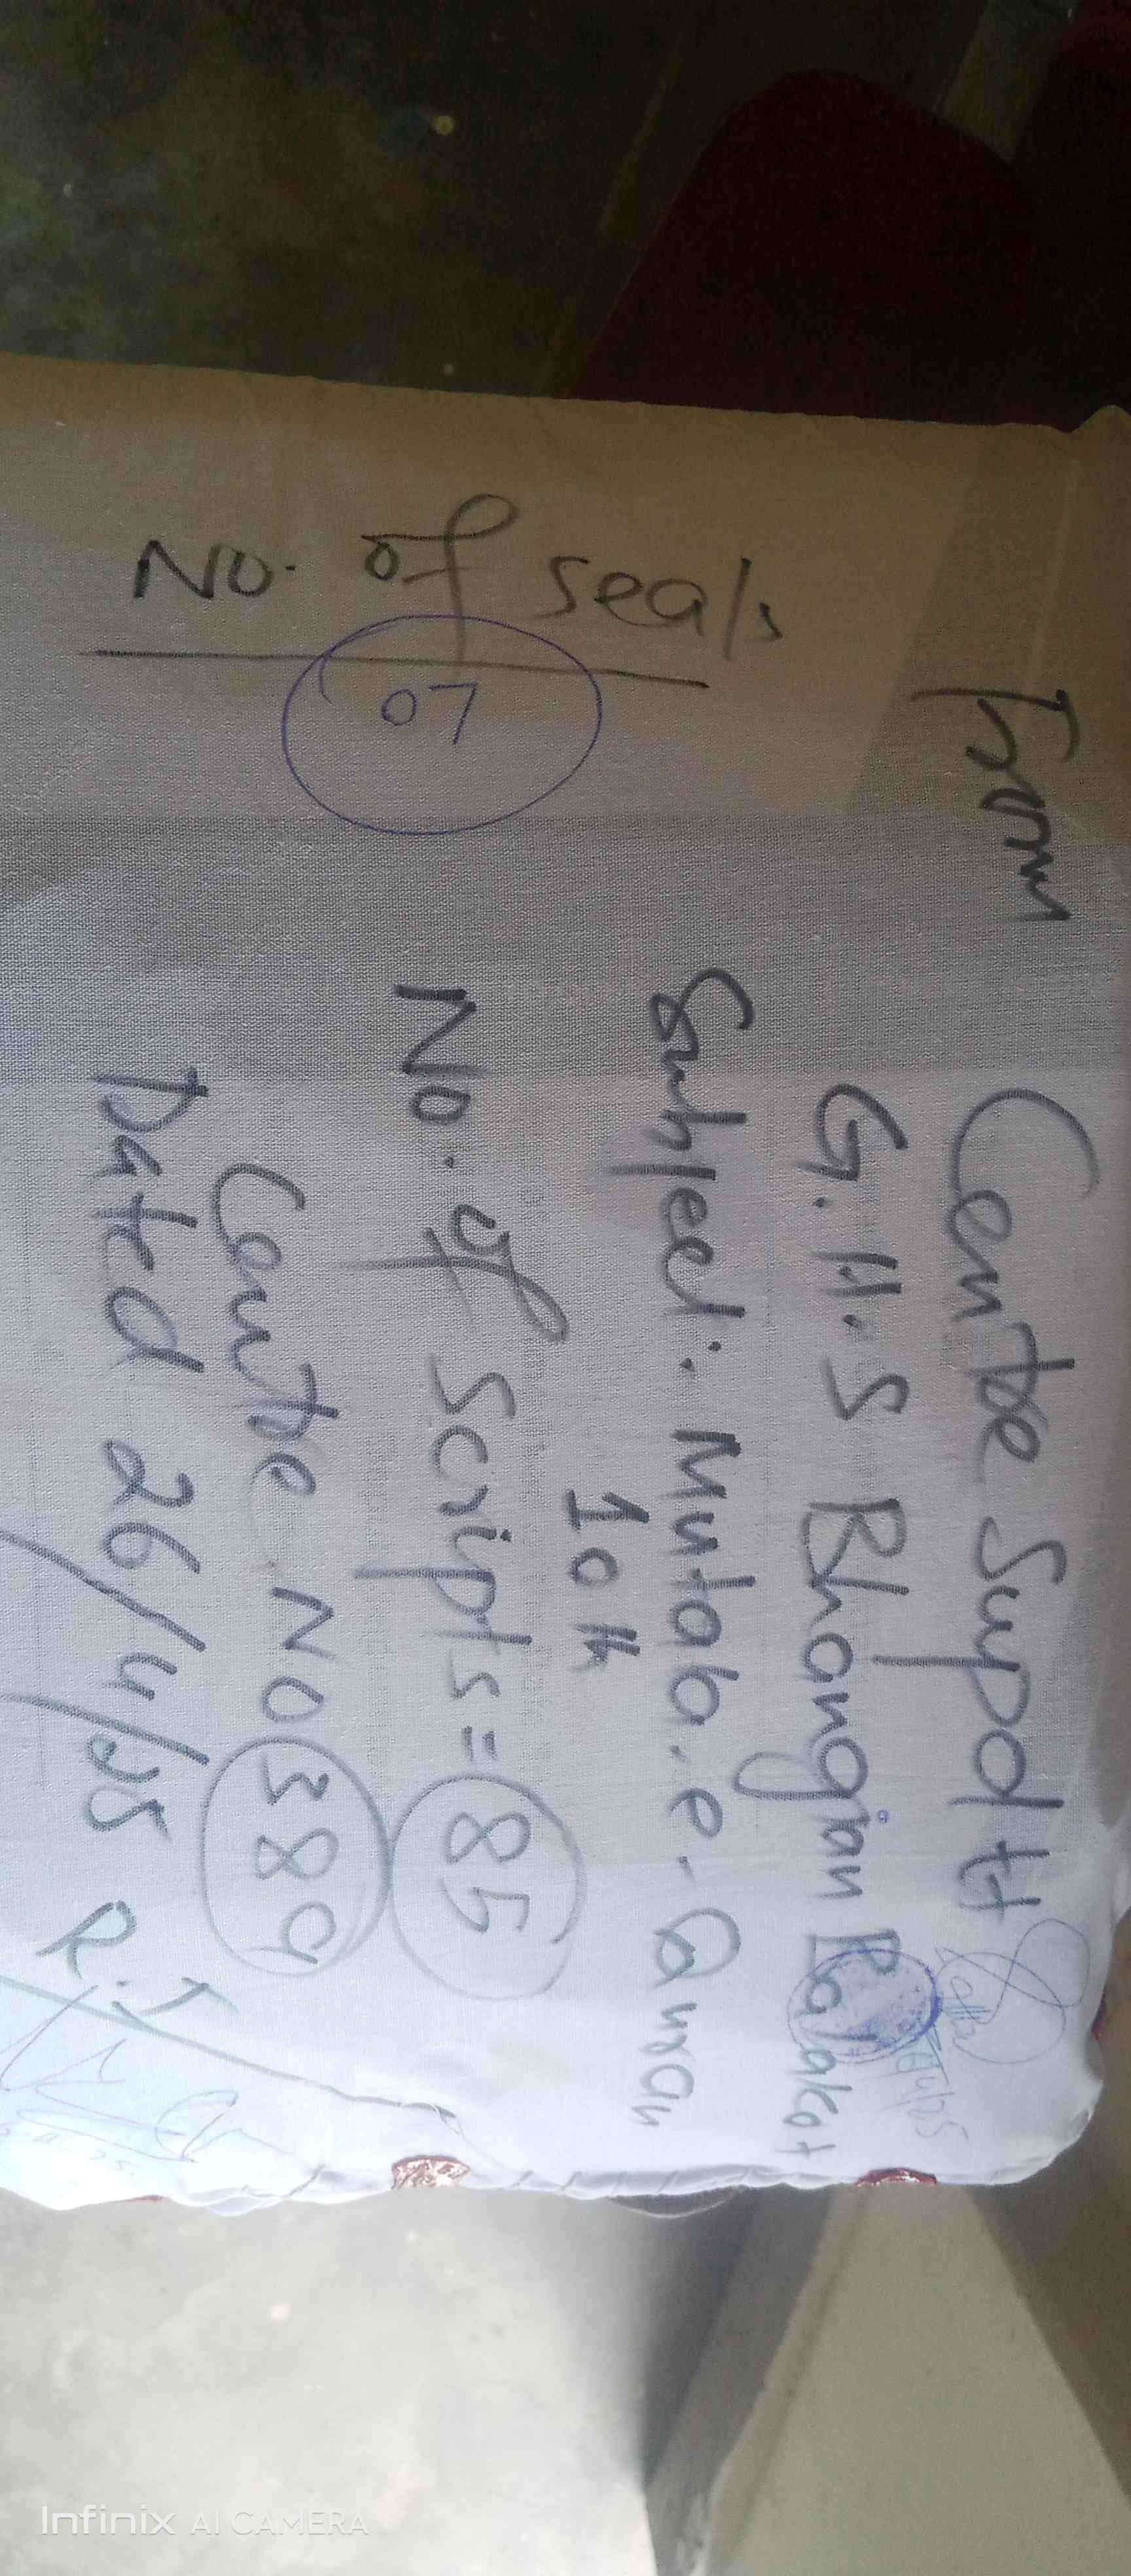 From
Centre Supdtt
G.H.S Bhangian Balakot
Subject:- Mutala.e.Quran
10th
No. of Scripts = 85
Centre No 389
Dated 26/4/25
No. of seals
07
Infinix AI CAMERA